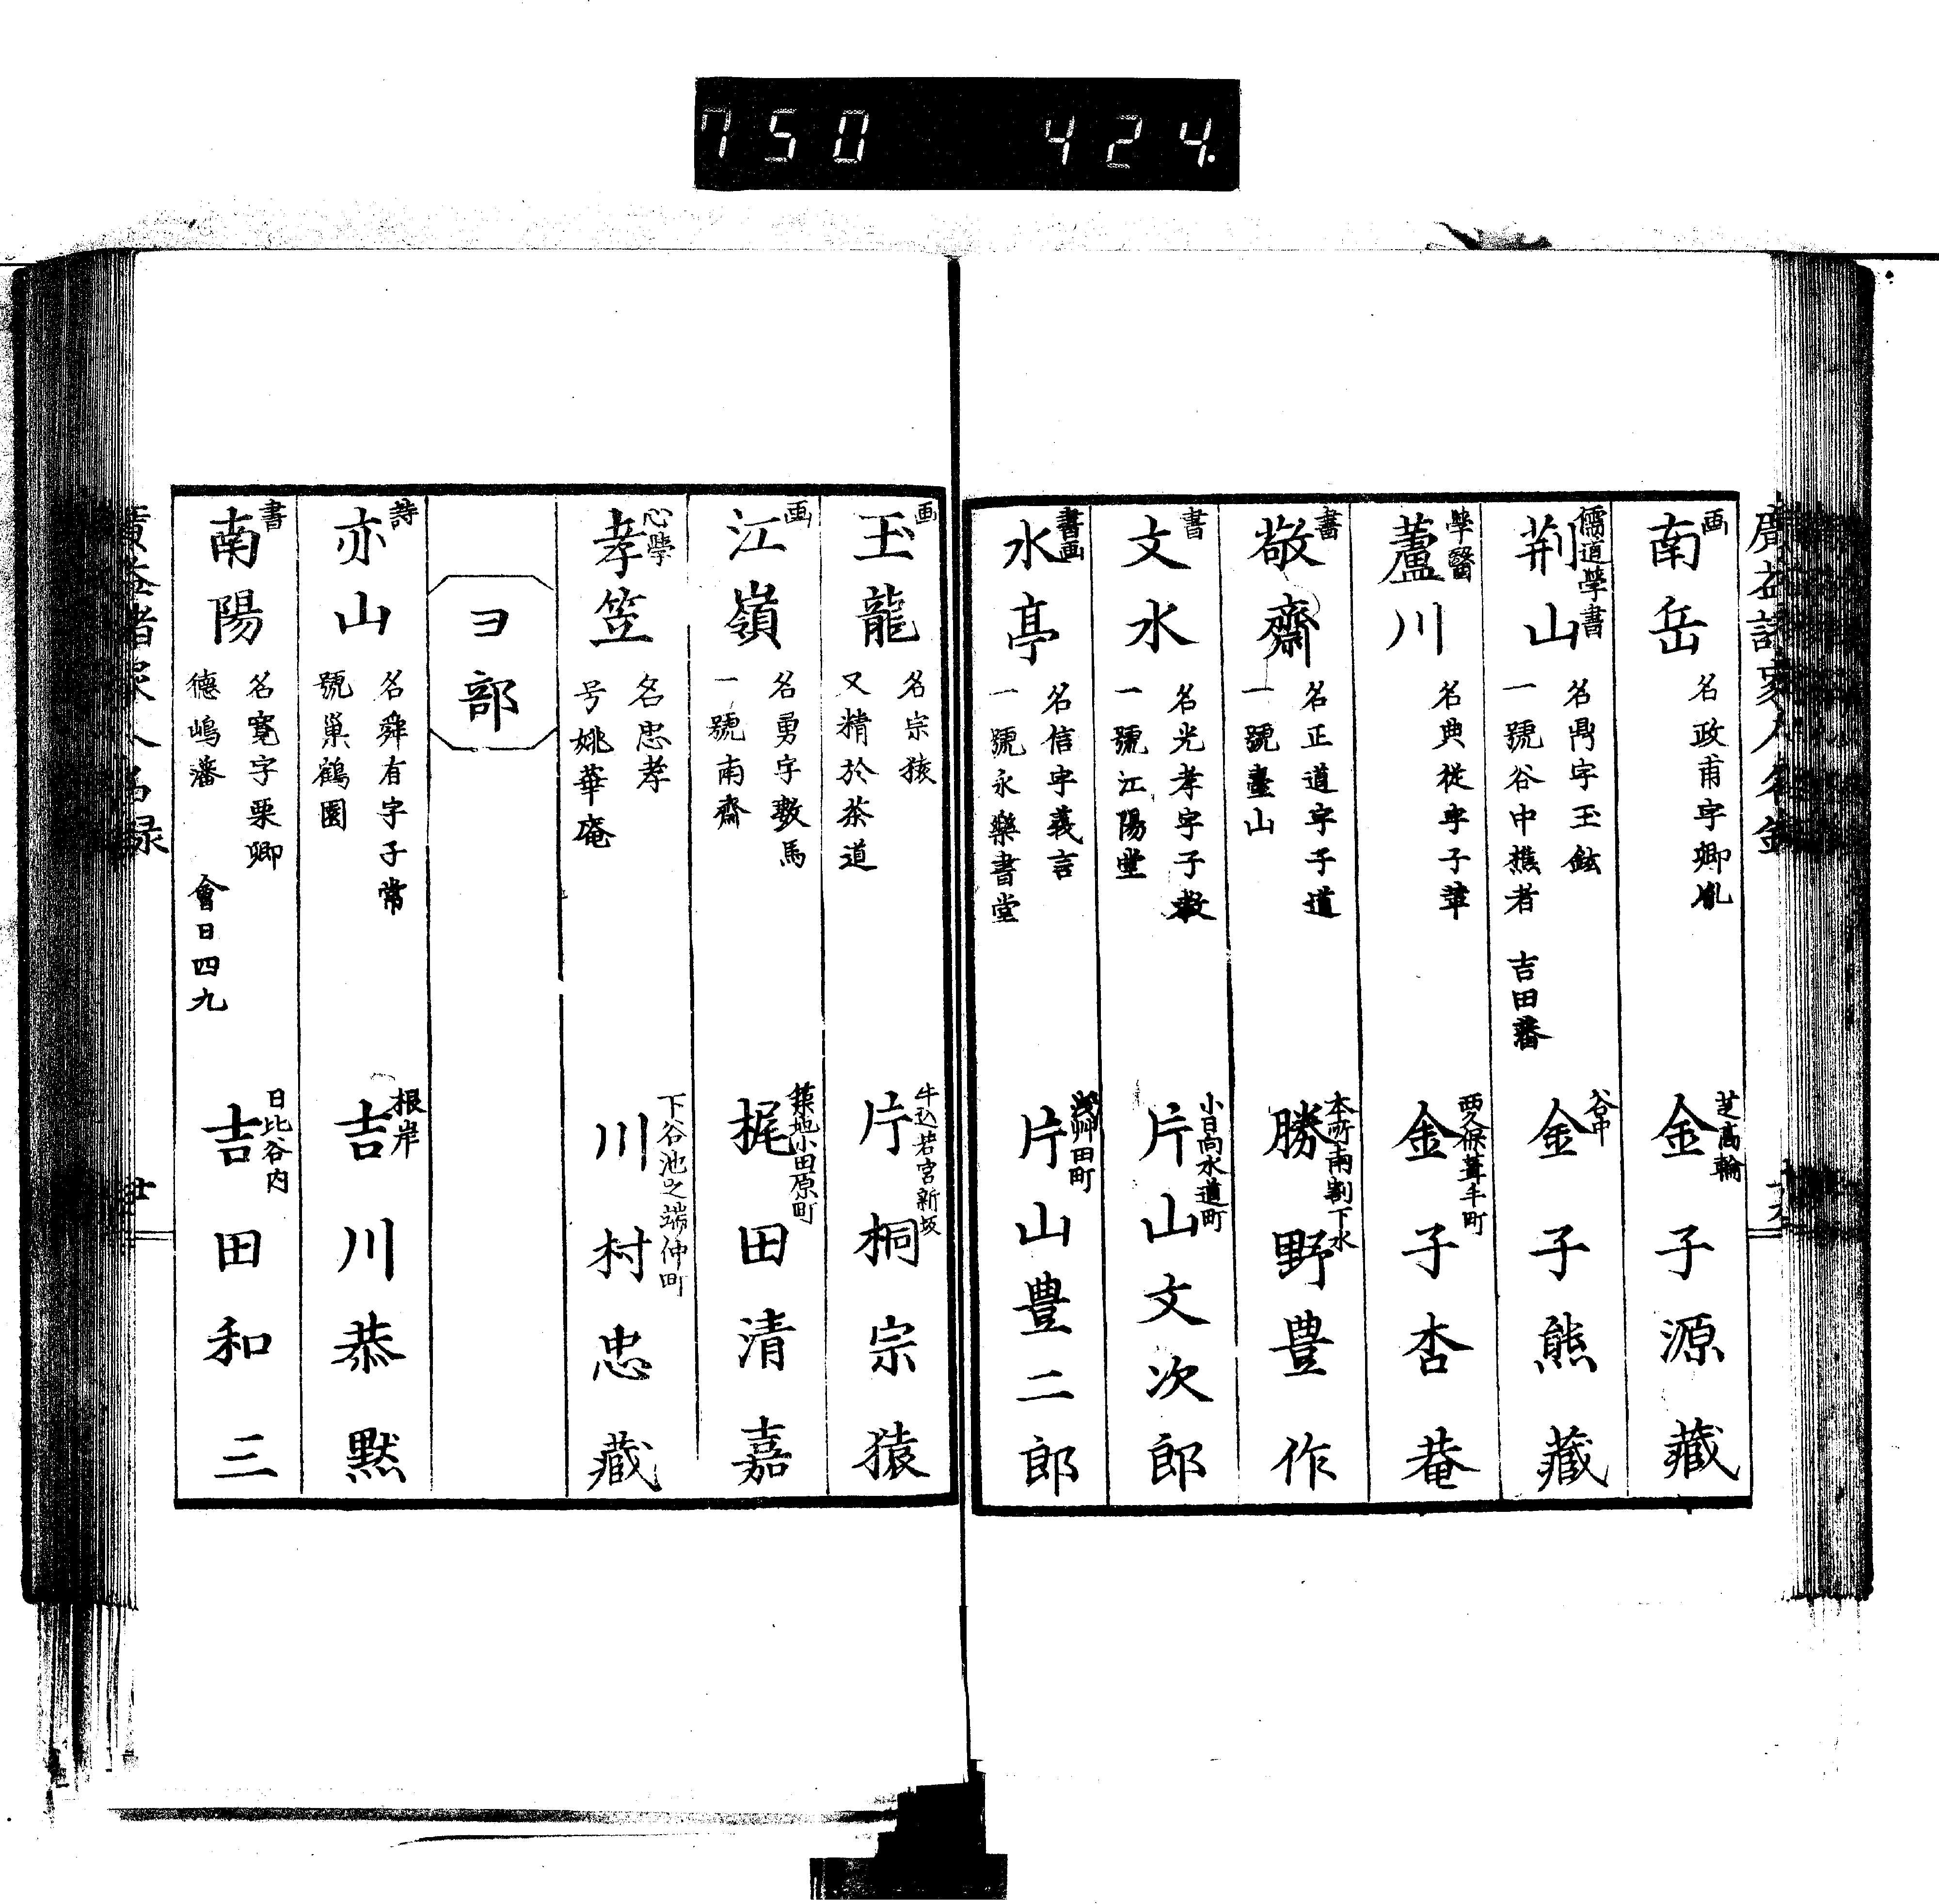 750 424.
画
南岳
名政甫字卿胤
芝高輪
金子源藏
儒道學書
荊山
名門字玉鉉
一號谷中樵者 吉田藩
谷中
金子熊藏
學醫
蘆川
名典従字子華
西久保葺手町
金子杏菴
書
敬齋
名正道字子道
一號臺山
本所南割下水
勝野豊作
書
文水
名光孝字子教
一號江陽堂
小日向水道町
片山文次郎
書画
水亭
名信字義言
一號永樂書堂
淺艸田町
片山豊二郎
画
玉龍
名宗猿
又精於茶道
牛込若宮新坂
片桐宗猿
画
江嶺
名勇字數馬
一號南齋
築地小田原町
梶田清嘉
心學
孝笠
名忠孝
号姚華庵
下谷池之端仲町
川村忠藏
ヨ部
詩
亦山
名舜有字子常
號巣鶴園
根岸
吉川恭黙
書
南陽
名寛字栗卿
德嶋藩 會日四九
日比谷内
吉田和三
廣益諸家人名録